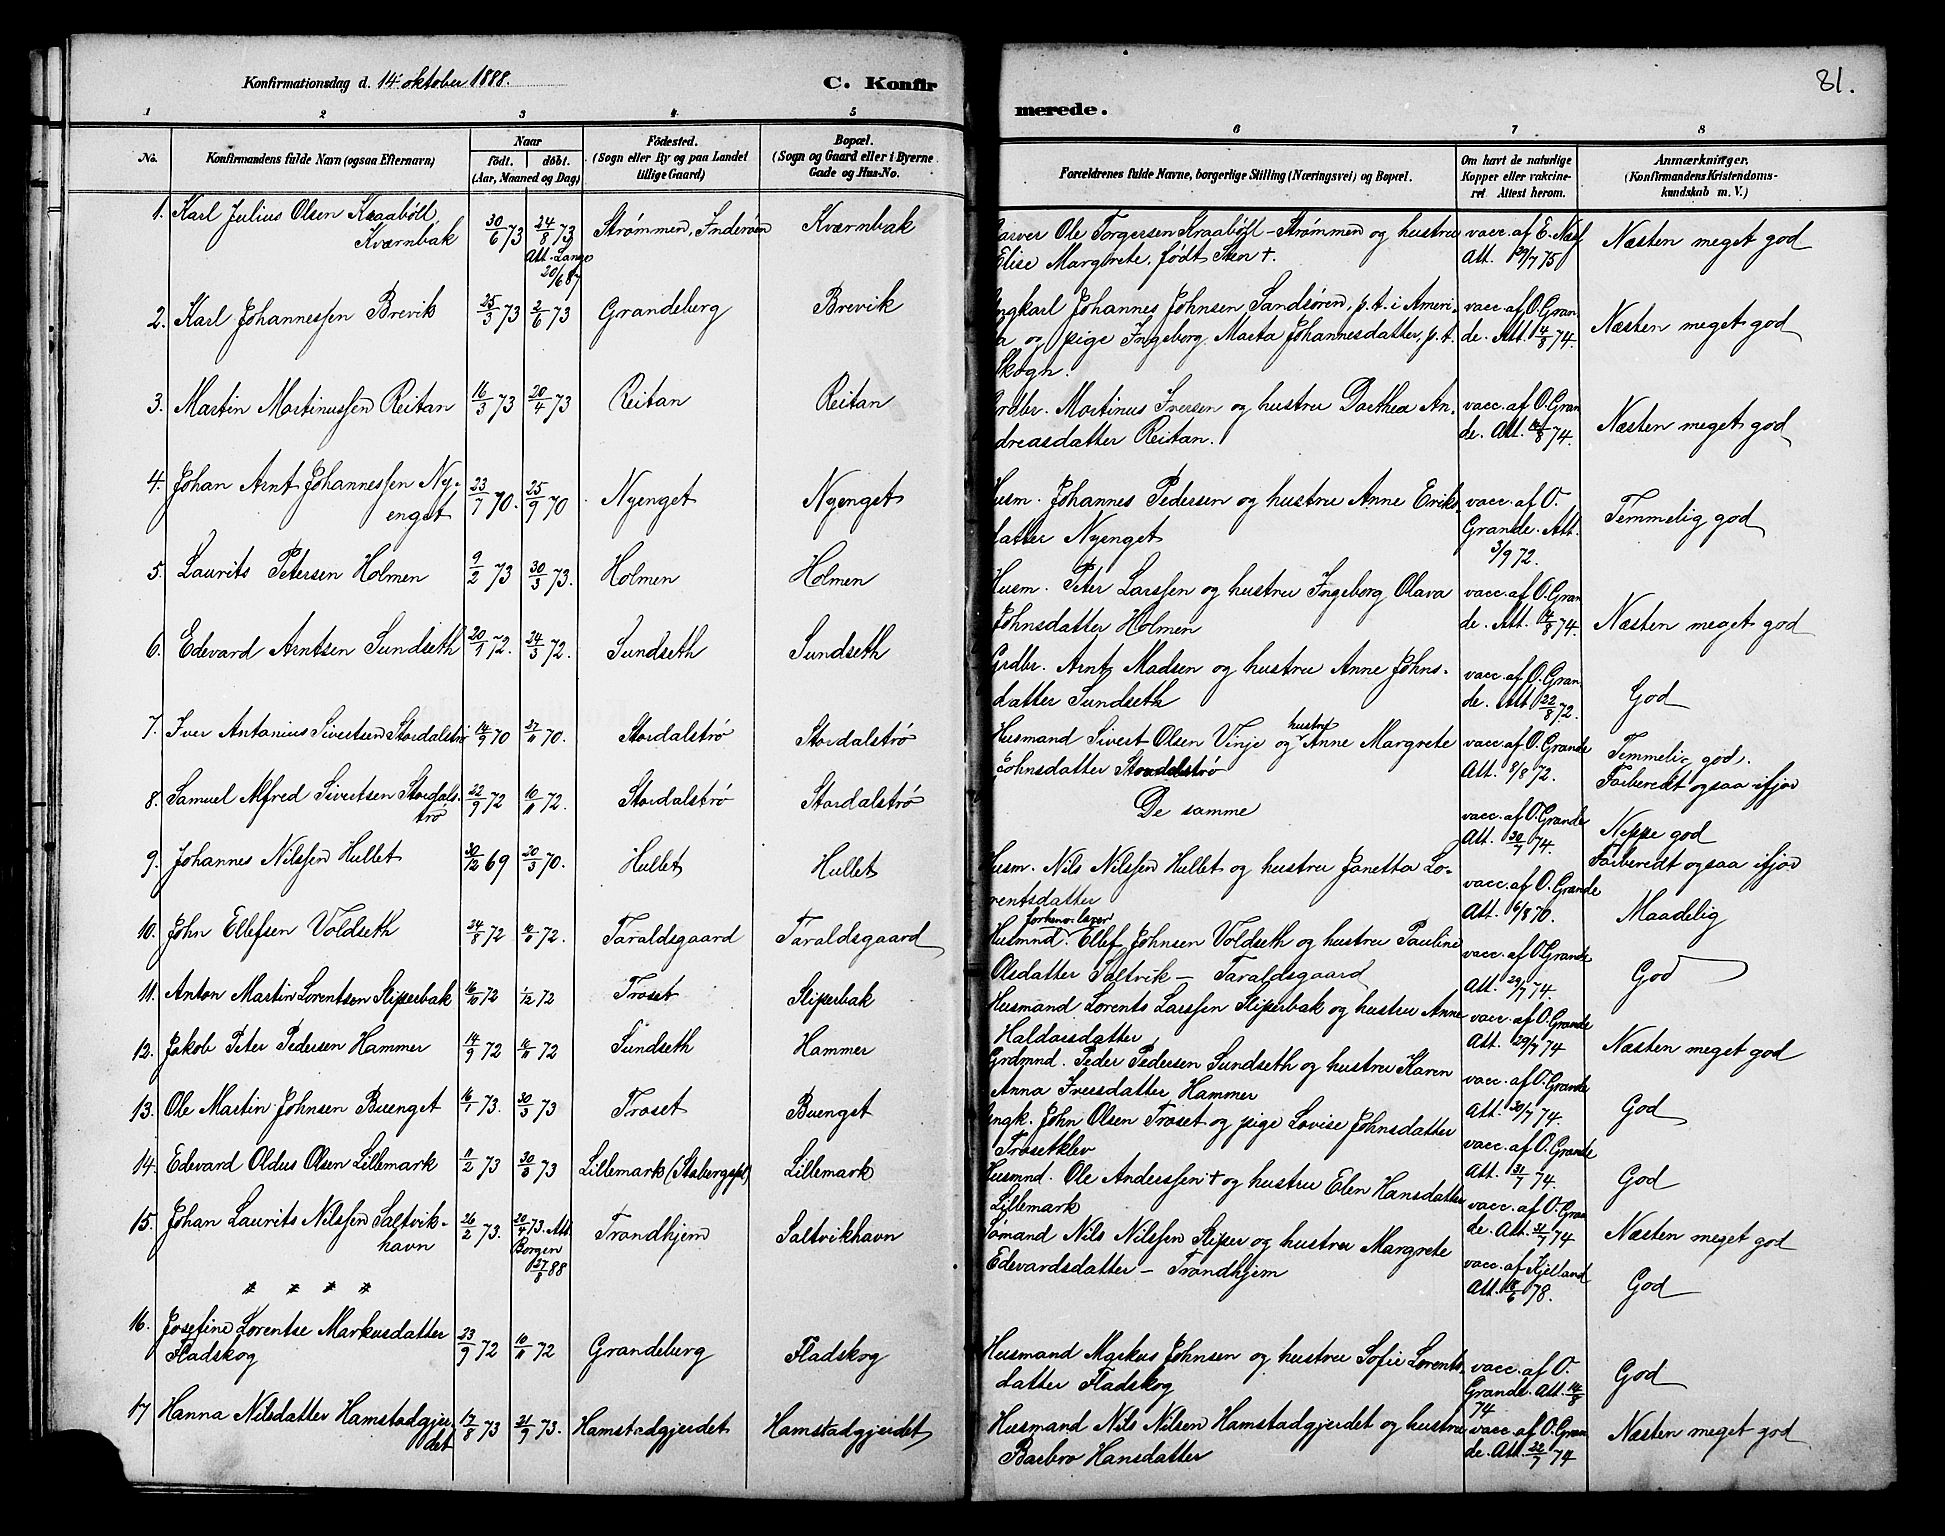 Konfirmationsdag d. 14 oktober 1888.
C. Konfir
merede.
81.
1 2 3 4 5 6 7 8
No.
Konfirmandens fulde Navn (ogsaa Efternavn)
Naar
födt. döbt.
(Aar, Maaned og Dag)
Födested.
(Sogn eller By og paa Landet
tillige Gaard)
Bopæl.
(Sogn og Gaard eller i Byerne
Gade og Hus-No.
Forældrenes fulde Navne, borgerlige Stilling (Næringsvei) og Bopæl.
Om havt de naturlige
Kopper eller vakcine-
ret Attest herom.
Anmærkninger.
(Konfirmandens Kristendoms-
kundskab m. V.)
1. Karl Julius Olsen Kraaböll
Kværnbak
30/6 73
24/8 73
Att. Lange
20/6 87
Strømmen, Inderøen
Kværnbak
Garver Ole Torgersen Kraaböll - Strømmen og hustru
Elise Margrete, født Sten +.
vacc. af E. Næss
Att. 19/7 75
Næsten meget god
2. Karl Johannessen Brevik
25/3 73
2/6 73
Grandeberg
Brevik
Ungkarl Johannes Johnsen Sandsøren, p. t. i Ameri-
ka og pige Ingeborg Marta Johannesdatter, p. t.
Skogn.
vacc. af O. Gran-
de. Att. 14/8 74.
Næsten meget god
3. Martin Martinussen Reitan
16/3 73
20/4 73
Reitan
Reitan
Grdbr. Martinus Iversen og hustru Dorthea An-
dreasdatter Reitan.
vacc. af O. Gran
de. Att. 14/8 74.
Næsten meget god
4. Johan Arnt Johannessen Ny-
enget
23/7 70.
25/9 70
Nyenget
Nyenget
Husm. Johannes Pedersen og hustru Anne Eriks-
datter Nyenget
vacc. af O.
Grande. Att.
3/9 72.
Temmelig god
5. Laurits Petersen Holmen
9/2 73
30/3 73.
Holmen
Holmen
Husm. Peter Larssen og hustru Ingeborg Olava
Johnsdatter Holmen
vacc. af O. Gran
de. Att. 14/8 74.
Næsten meget god
6. Edevard Arntsen Sundseth
20/1 72.
24/3 72.
Sundseth
Sundseth
Grdbr. Arnt Madsen og hustru Anne Johns-
datter Sundseth
vacc. af O. Gran
de. Att 22/8 72.
God
7. Iver Antonius Sivertsen Stordalstrø
14/9 70
27/11 70.
Stordalstrø
Stordalstrø
Husmand Sivert Olsen Vinje og hustru Anne Margrete
Johnsdatter Stordalstrø
vacc. af O. Grande
Att. 8/8 72.
Temmelig god.
Forberedt ogsaa ifjor
8. Samuel Alfred Sivertsen Stordals-
trø
22/9 72
10/11 72.
Stordalstrø
Stordalstrø
De samme
vacc. af O. Grande
Att. 30/7 74.
Neppe god
Forberedt ogsaa ifjor
9. Johannes Nilssen Hullet
30/12 69
20/3 70.
Hullet
Hullet
Husm. Nils Nilssen Hullet og hustru Janetta Lo-
rentsdatter
vacc. af O. Grande
Att. 16/8 70.
Maadelig
10. John Ellefsen Voldseth
24/8 72
10/11 72.
Taraldsgaard
Taraldsgaard
Husmnd. Ellef Johnsen Voldseth og hustru Pauline
Olsdatter Saltvik - Taraldsgaard
vacc. af O. Grande
Att. 29/7 74.
God
11. Anton Martin Lorentsen Sliperbak
16/10 72
1/12 72
Troset
Sliperbak
Husmand Lorents Larssen Sliperbak og hustru Anne
Haldosdatter
vacc. af O. Grande
Att. 29/7 74
Næsten meget god
12. Jakob Peter Pedersen Hammer
14/9 72
10/11 72
Sundseth
Hammer
Grdmnd. Peder Pedersen Sundseth og hustru Karen
Anna Iversdatter Hammer
vacc. af O. Grande
Att. 30/7 74.
God
13. Ole Martin Johnsen Buenget
16/1 73.
30/3 73
Troset
Buenget
Ungk. John Olsen Troset og pige Lovise Johnsdatter
Trosetklev
vacc. af O. Grande
Att. 31/7 74.
God
14. Edevard Oldus Olsen Lillemark
11/2 73
30/3 73
Lillemark (Stabergspl)
Lillemark
Husmnd. Ole Anderssen + og hustru Elen Hansdatter
Lillemark
vacc. af O. Gran
de. Att. 31/7 74
Næsten meget god
15. Johan Laurits Nilssen Saltvik-
havn
26/2 73.
20/4 73. Att.
Borgen
27/8 88
Trondhjem
Saltvikhavn
Sømand Nils Nilssen Sliper og hustru Margrete
Edevardsdatter - Trondhjem
vacc. af Kjelland
Att. 18/6 78.
God
* * * *
16. Josefine Lorentse Markusdatter
Fladskog
23/9 72
10/11 72
Grandeberg
Fladskog
Husmand Markus Johnsen og hustru Sofie Lorents-
datter Fladskog
vacc. af O.
Grande. Att. 14/8
74
God
17 Hanna Nilsdatter Hamstadgjer-
det
17/8 73
21/9 73.
Hamstadgjerdet
Hamstadgjerdet
Husmand Nils Nilsen Hamstadgjerdet og hustru
Barbro Hansdatter
vacc. af O. Gran
de. Att. 22/7 74
Næsten meget god